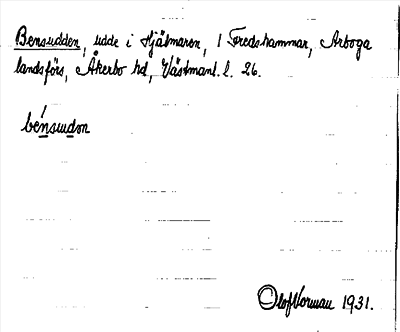 Bensudden, udde i Hjälmaren, 1 Fredshammar, Arboga
landsförs, Åkerbo hd, Västmanl. l. 26.
bénsudən
Olof Norman 1931.